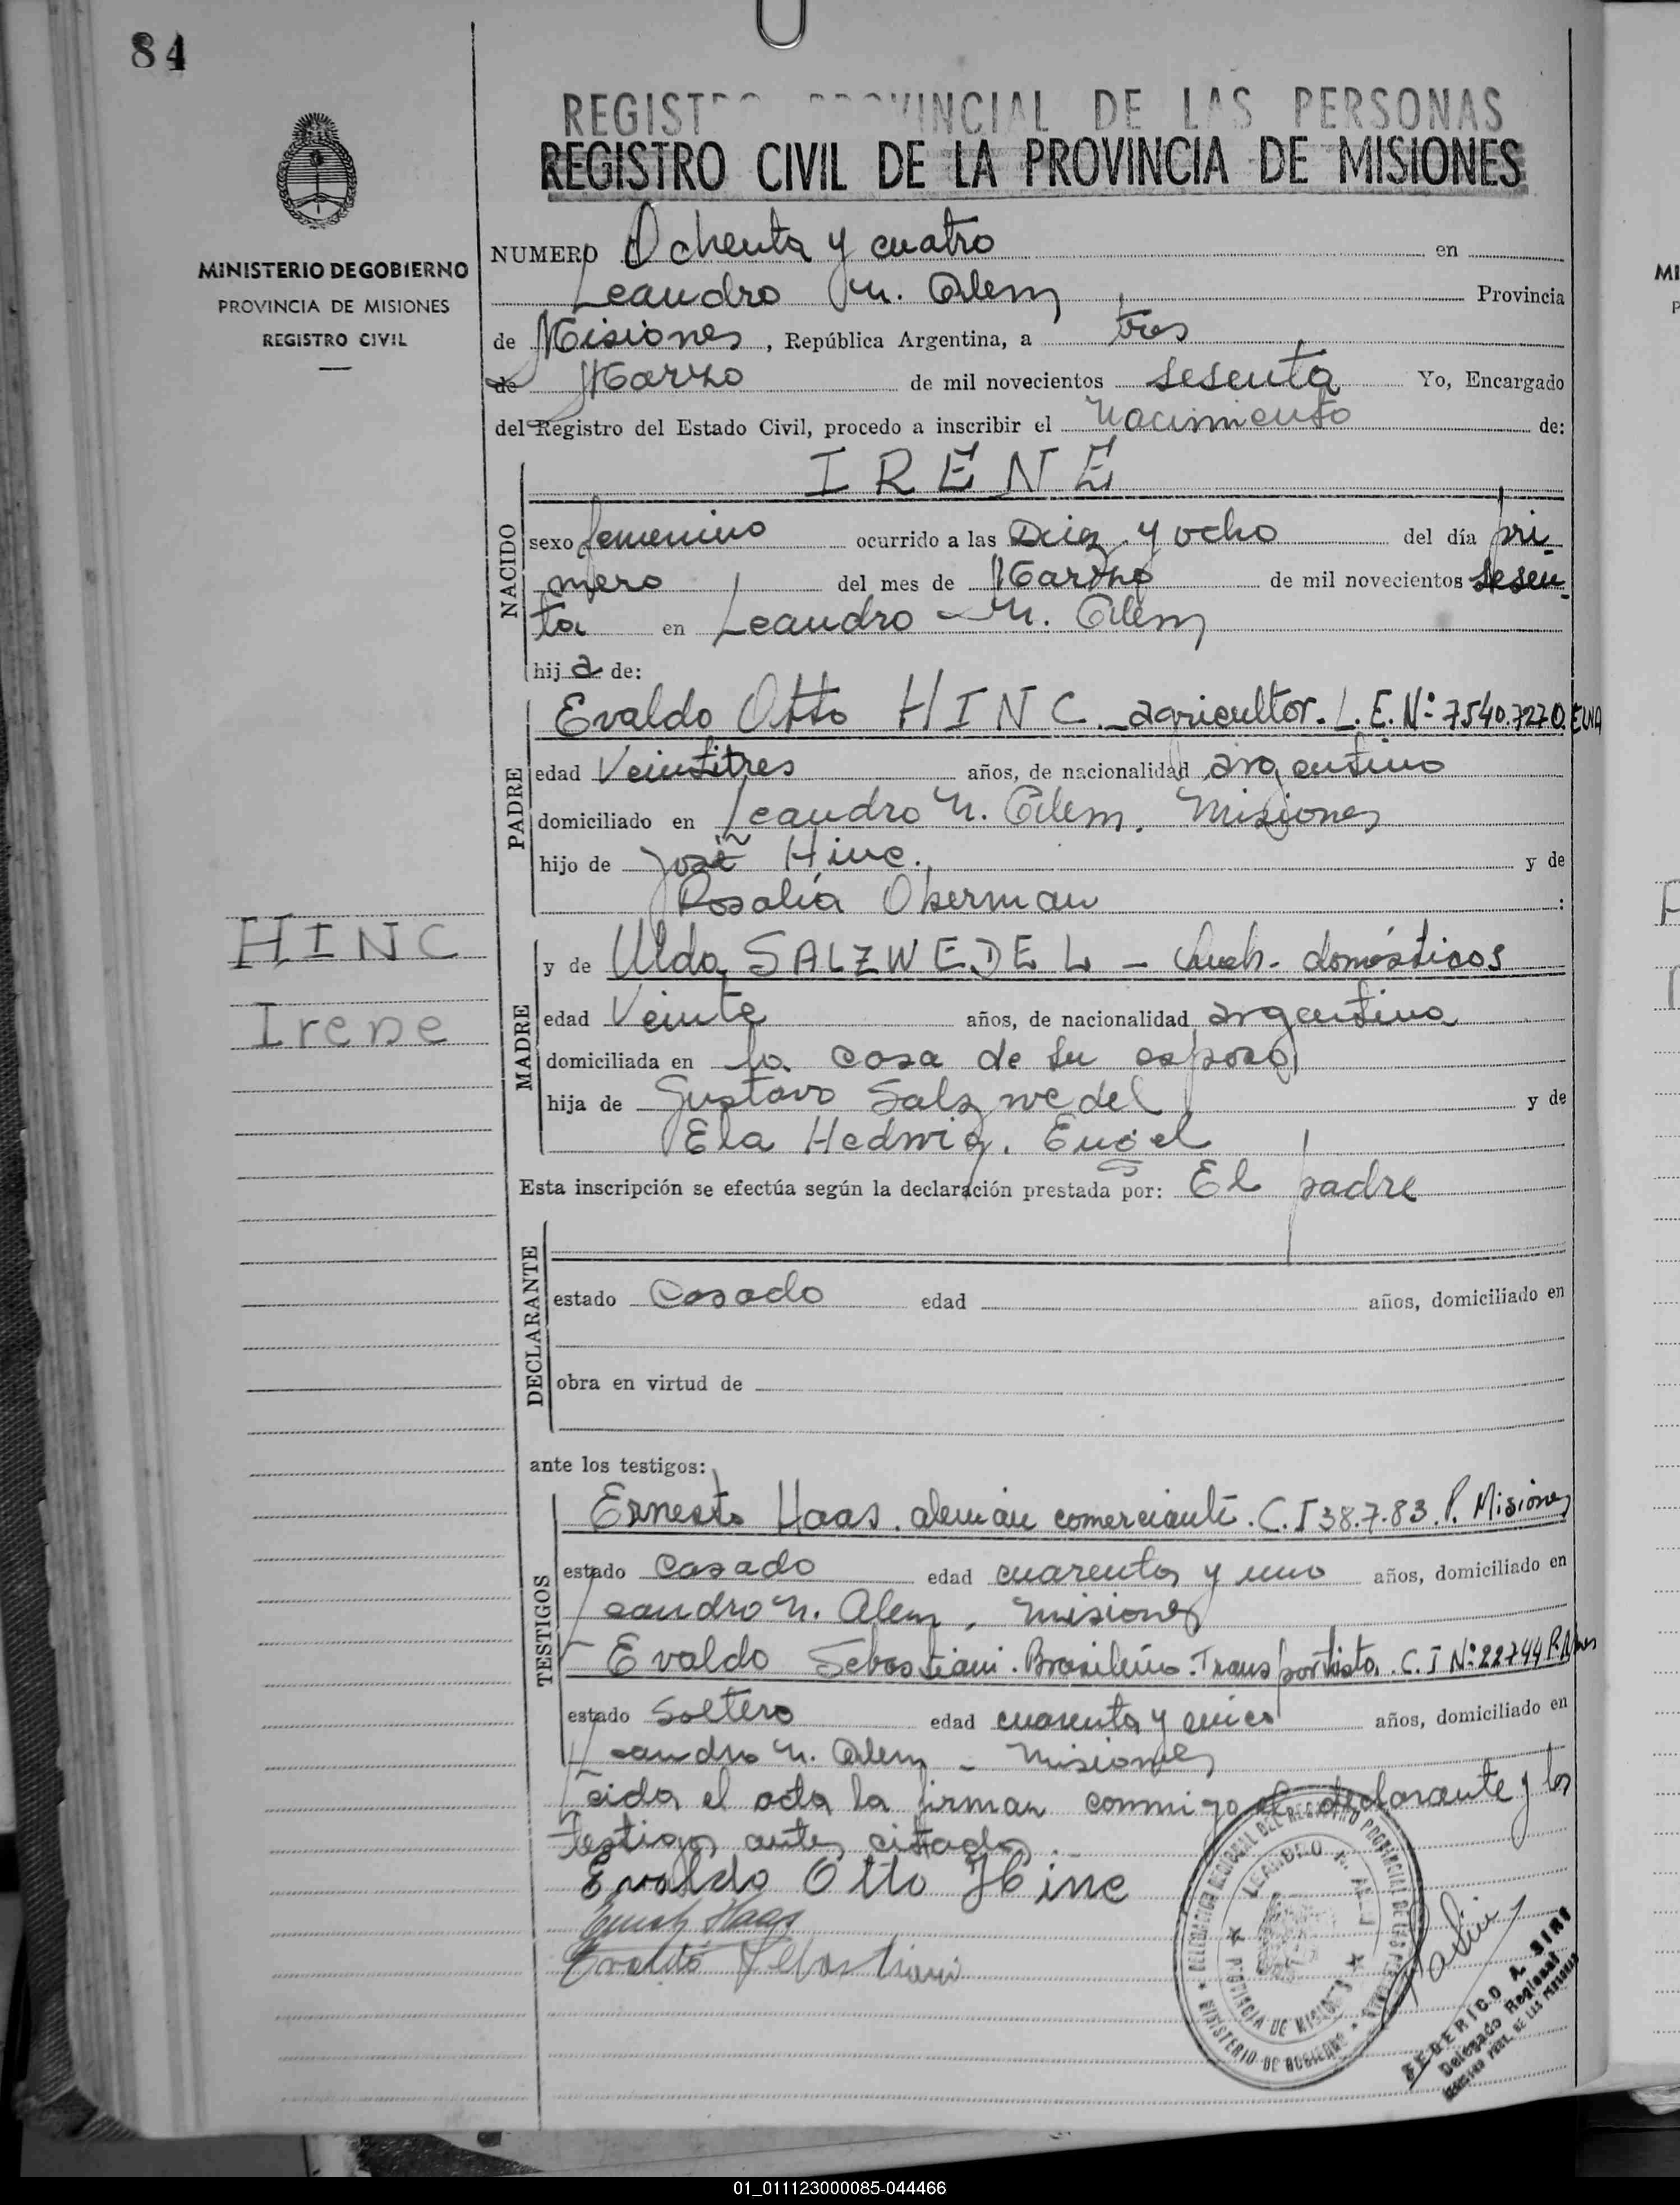 84
REGISTRO PROVINCIAL DE LAS PERSONAS
REGISTRO CIVIL DE LA PROVINCIA DE MISIONES
MINISTERIO DE GOBIERNO
PROVINCIA DE MISIONES
REGISTRO CIVIL
NUMERO Ochenta y cuatro en
Leandro N. Alem Provincia
de Misiones, República Argentina, a tres
de Marzo de mil novecientos sesenta Yo, Encargado
del Registro del Estado Civil, procedo a inscribir el Nacimiento de:
IRENE
NACIDO
sexo femenino ocurrido a las Diez y ocho del día pri-
mero del mes de Marzo de mil novecientos sesen-
ta en Leandro N. Alem
hija de:
PADRE
Evaldo Otto HINC - agricultor. L. E. Nº 7540.7270.
edad Veintitres años, de nacionalidad argentino
domiciliado en Leandro N. Alem. Misiones
hijo de José Hinc. y de
Rosalia Oberman :
HINC
Irene
MADRE
y de Ulda SALZWEDEL - Queh. domésticos
edad Veinte años, de nacionalidad argentina
domiciliada en la casa de su esposo
hija de Gustavo Salzwedel y de
Ela Hedwig. Engel
Esta inscripción se efectúa según la declaración prestada por: El padre
DECLARANTE
estado Casado edad años, domiciliado en
obra en virtud de
ante los testigos:
TESTIGOS
Ernesto Haas. alemán comerciante. C. I 38.7.83. P. Misiones
estado casado edad cuarenta y uno años, domiciliado en
Leandro N. Alem, Misiones
Evaldo Sebastiani. Brasileño. Transportista. C. I Nº 22744 P.
estado soltero edad cuarenta y cinco años, domiciliado en
Leandro N. Alem - Misiones
Leida el acta la firman conmigo el declarante y los
testigos antes citados
Evaldo Otto Hinc
Ernesto Haas
Evaldo Sebastiani
DELEGACION REGIONAL DEL REGISTRO PROVINCIAL DE LAS PERSONAS
LEANDRO N. ALEM
PROVINCIA DE MISIONES
MINISTERIO DE GOBIERNO
FEDERICO A. SIRI
Delegado Regional
REGISTRO PROV. DE LAS PERSONAS
01_011123000085-044466